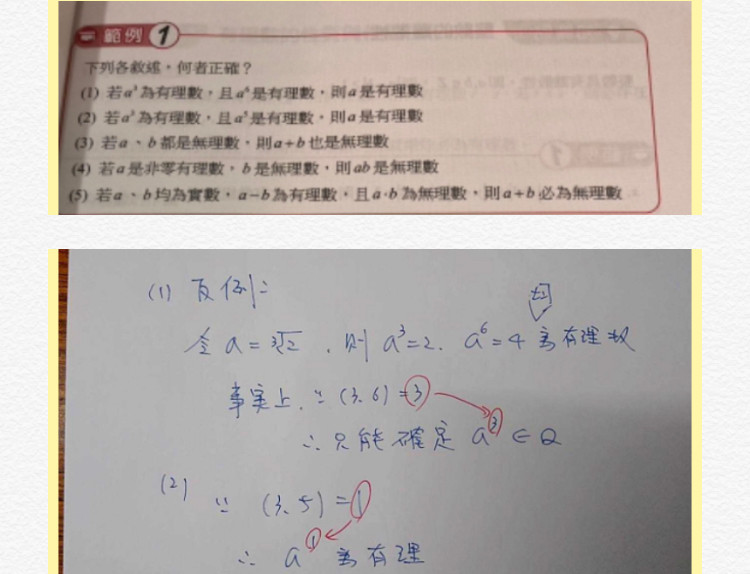 範例 1
下列各敘述，何者正確？
(1) 若a³為有理數，且a⁶是有理數，則a是有理數
(2) 若a³為有理數，且a⁵是有理數，則a是有理數
(3) 若a、b都是無理數，則a+b也是無理數
(4) 若a是非零有理數，b是無理數，則ab是無理數
(5) 若a、b均為實數，a-b為有理數，且a·b為無理數，則a+b必為無理數
(1) 反例：
均
令 a = ∛2 , 則 a³=2. a⁶=4 為有理数
事実上, ∵ (3.6) = 3
∴ 只能確定 a³ ∈ Q
(2) ∵ (3.5) = 1
∴ a¹ 為有理